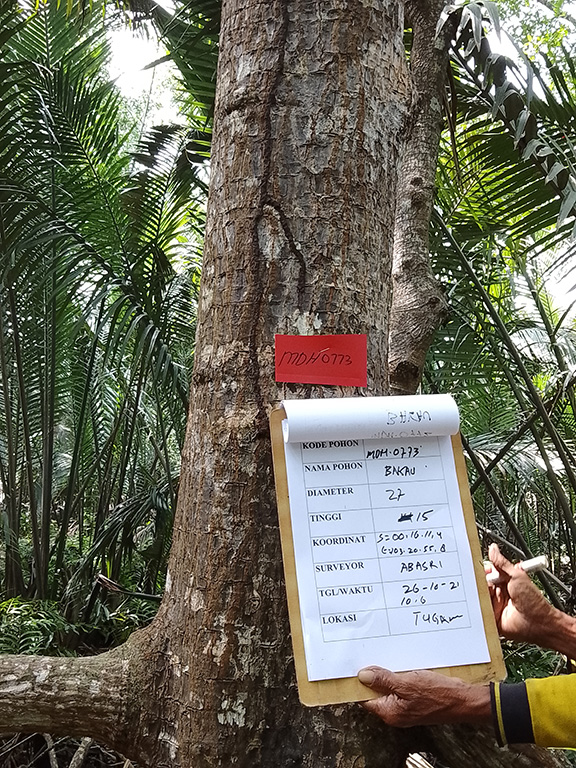 MDH0773
KODE POHON MDH.0773
NAMA POHON BAKAU
DIAMETER 27
TINGGI 15
KOORDINAT S=00.16.11,4
E=103.20.55,8
SURVEYOR ABASRI
TGL/WAKTU 26-10-21
10.6
LOKASI